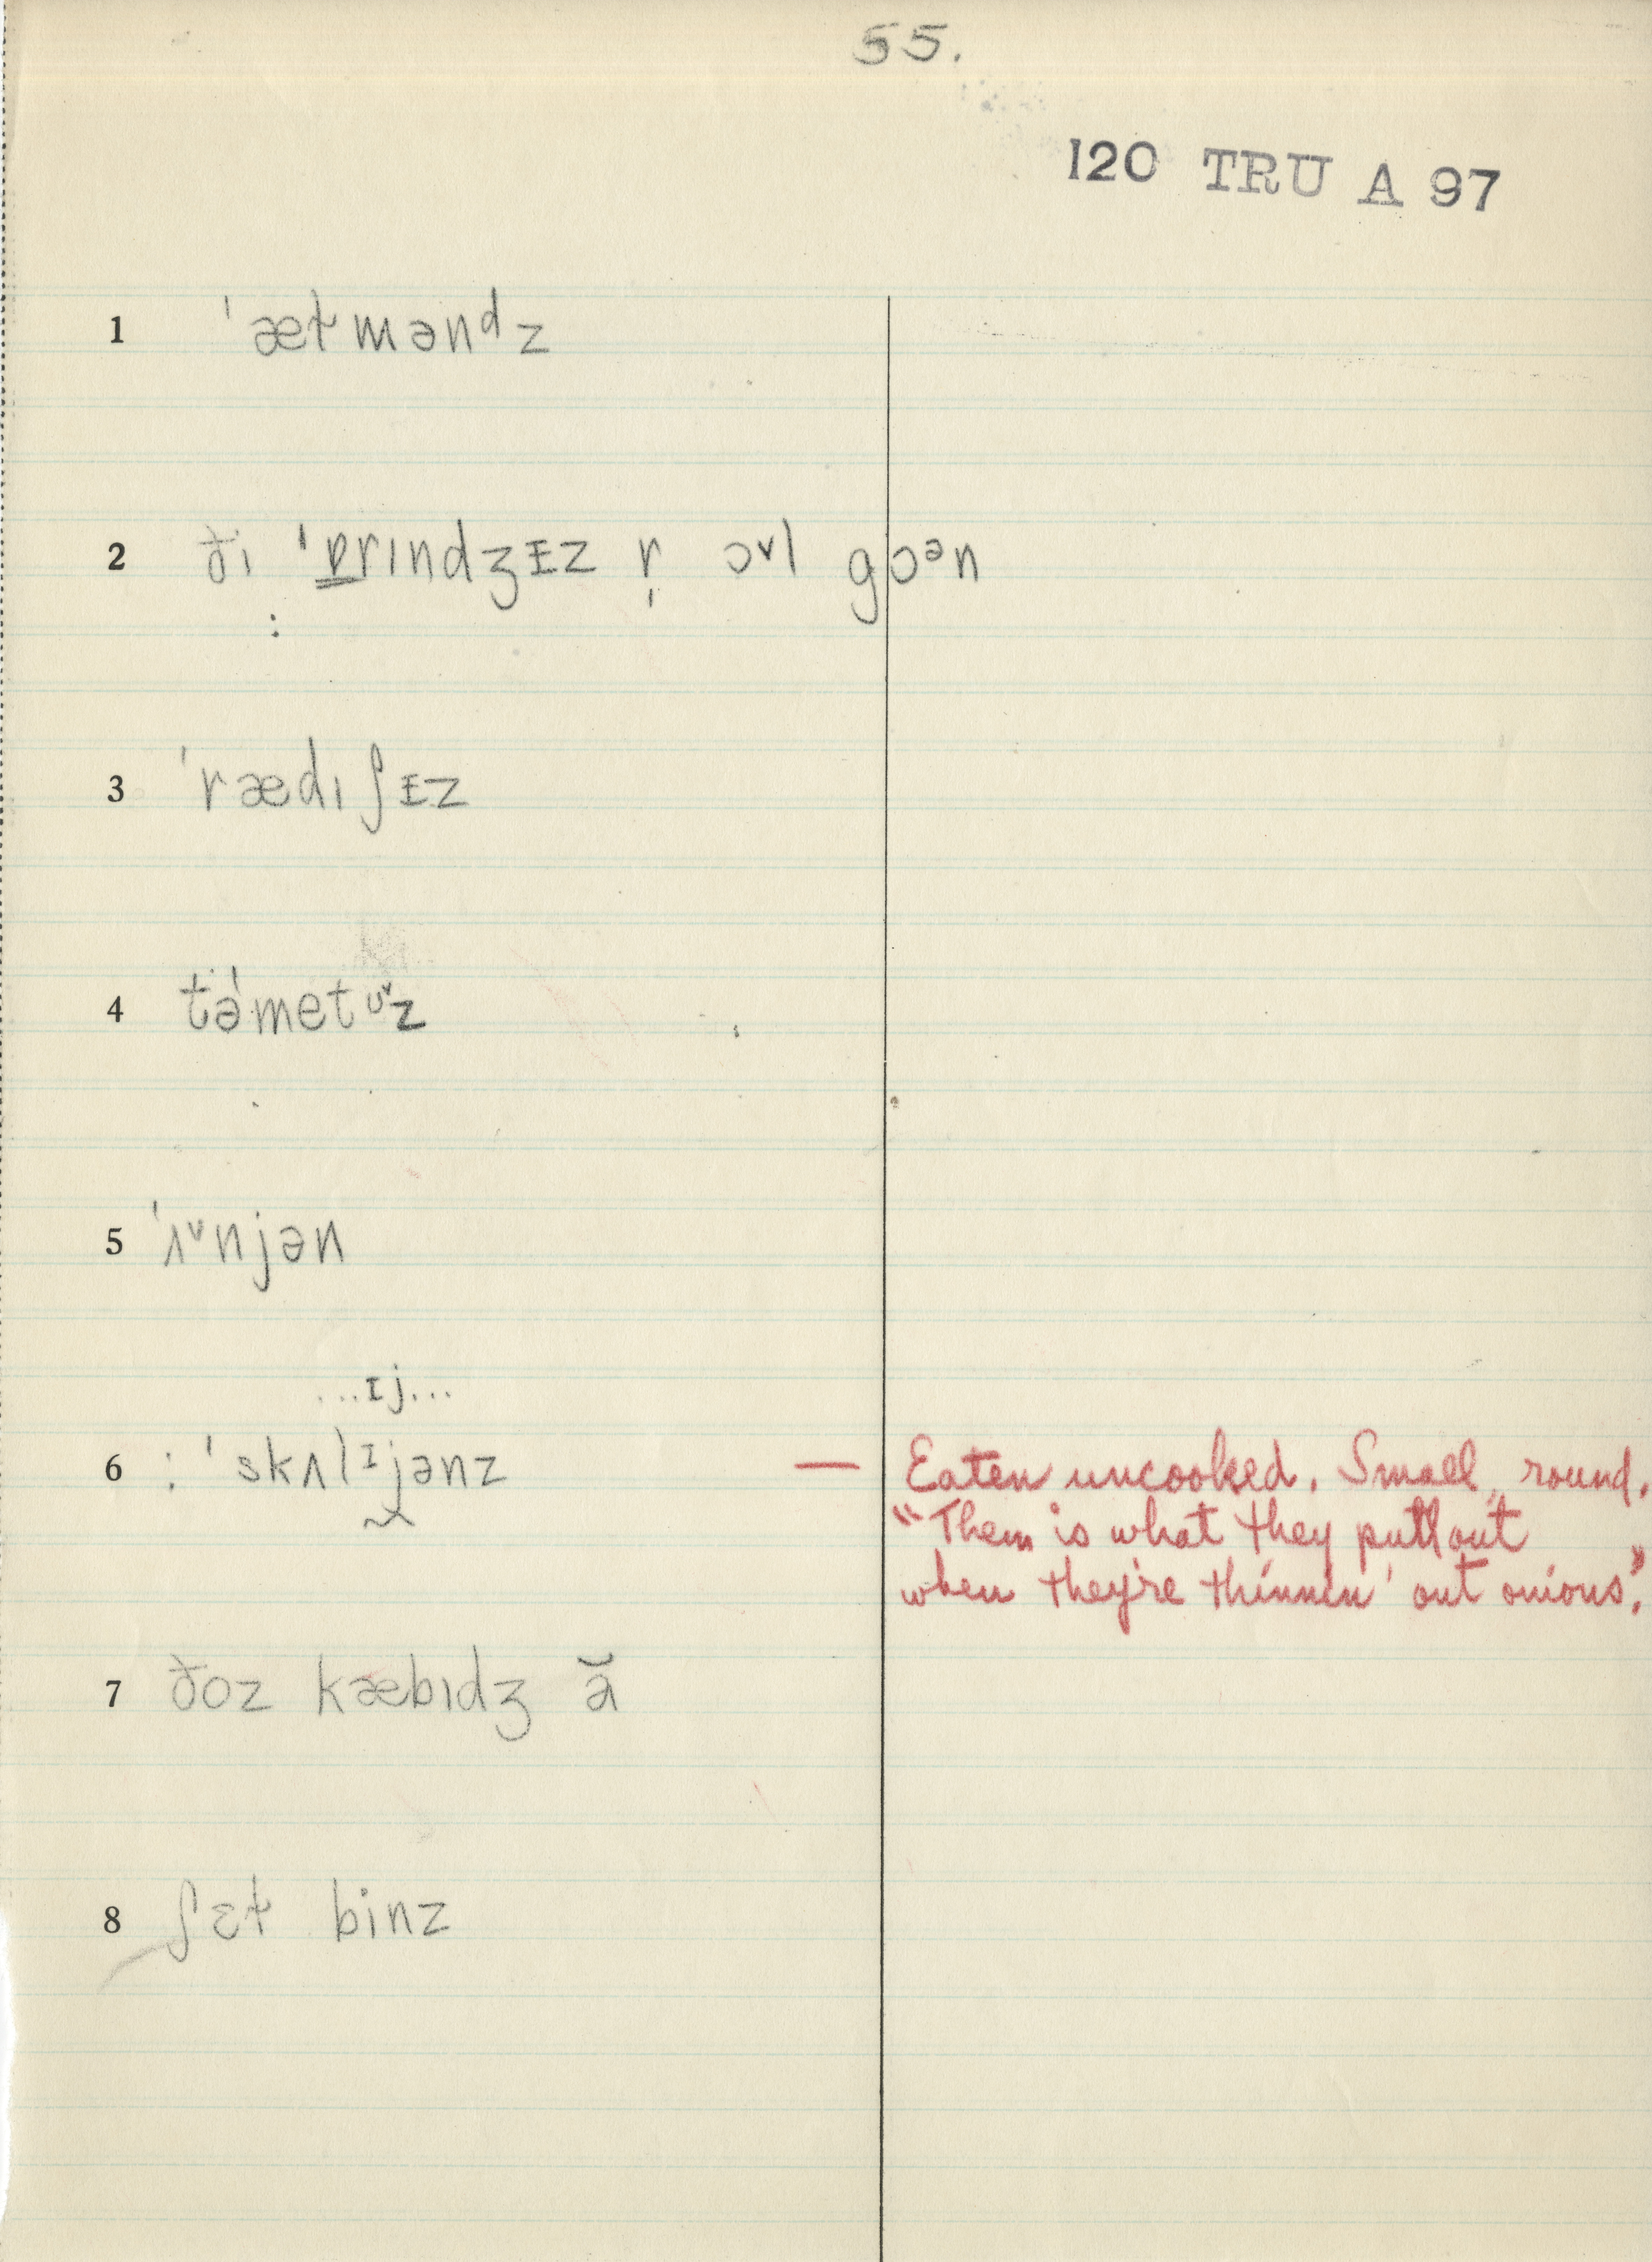 55.
120 TRU A 97
1 ˈæɫmənᵈz
2 ði ˈɒrɪndʒɪz r̩ ɔᵛl gɔᵊn
:
3 ˈrædɪʃɪz
4 təˈmetᶷᵛz
5 ˈʌᵛnjən
...ɪj...
6 : ˈskʌlᶦjənz — Eaten uncooked. Small, round.
"Them is what they pull out
when they're thinnin' out onions."
7 ðoz kæbɪdʒ ă
8 ʃɛɫ binz